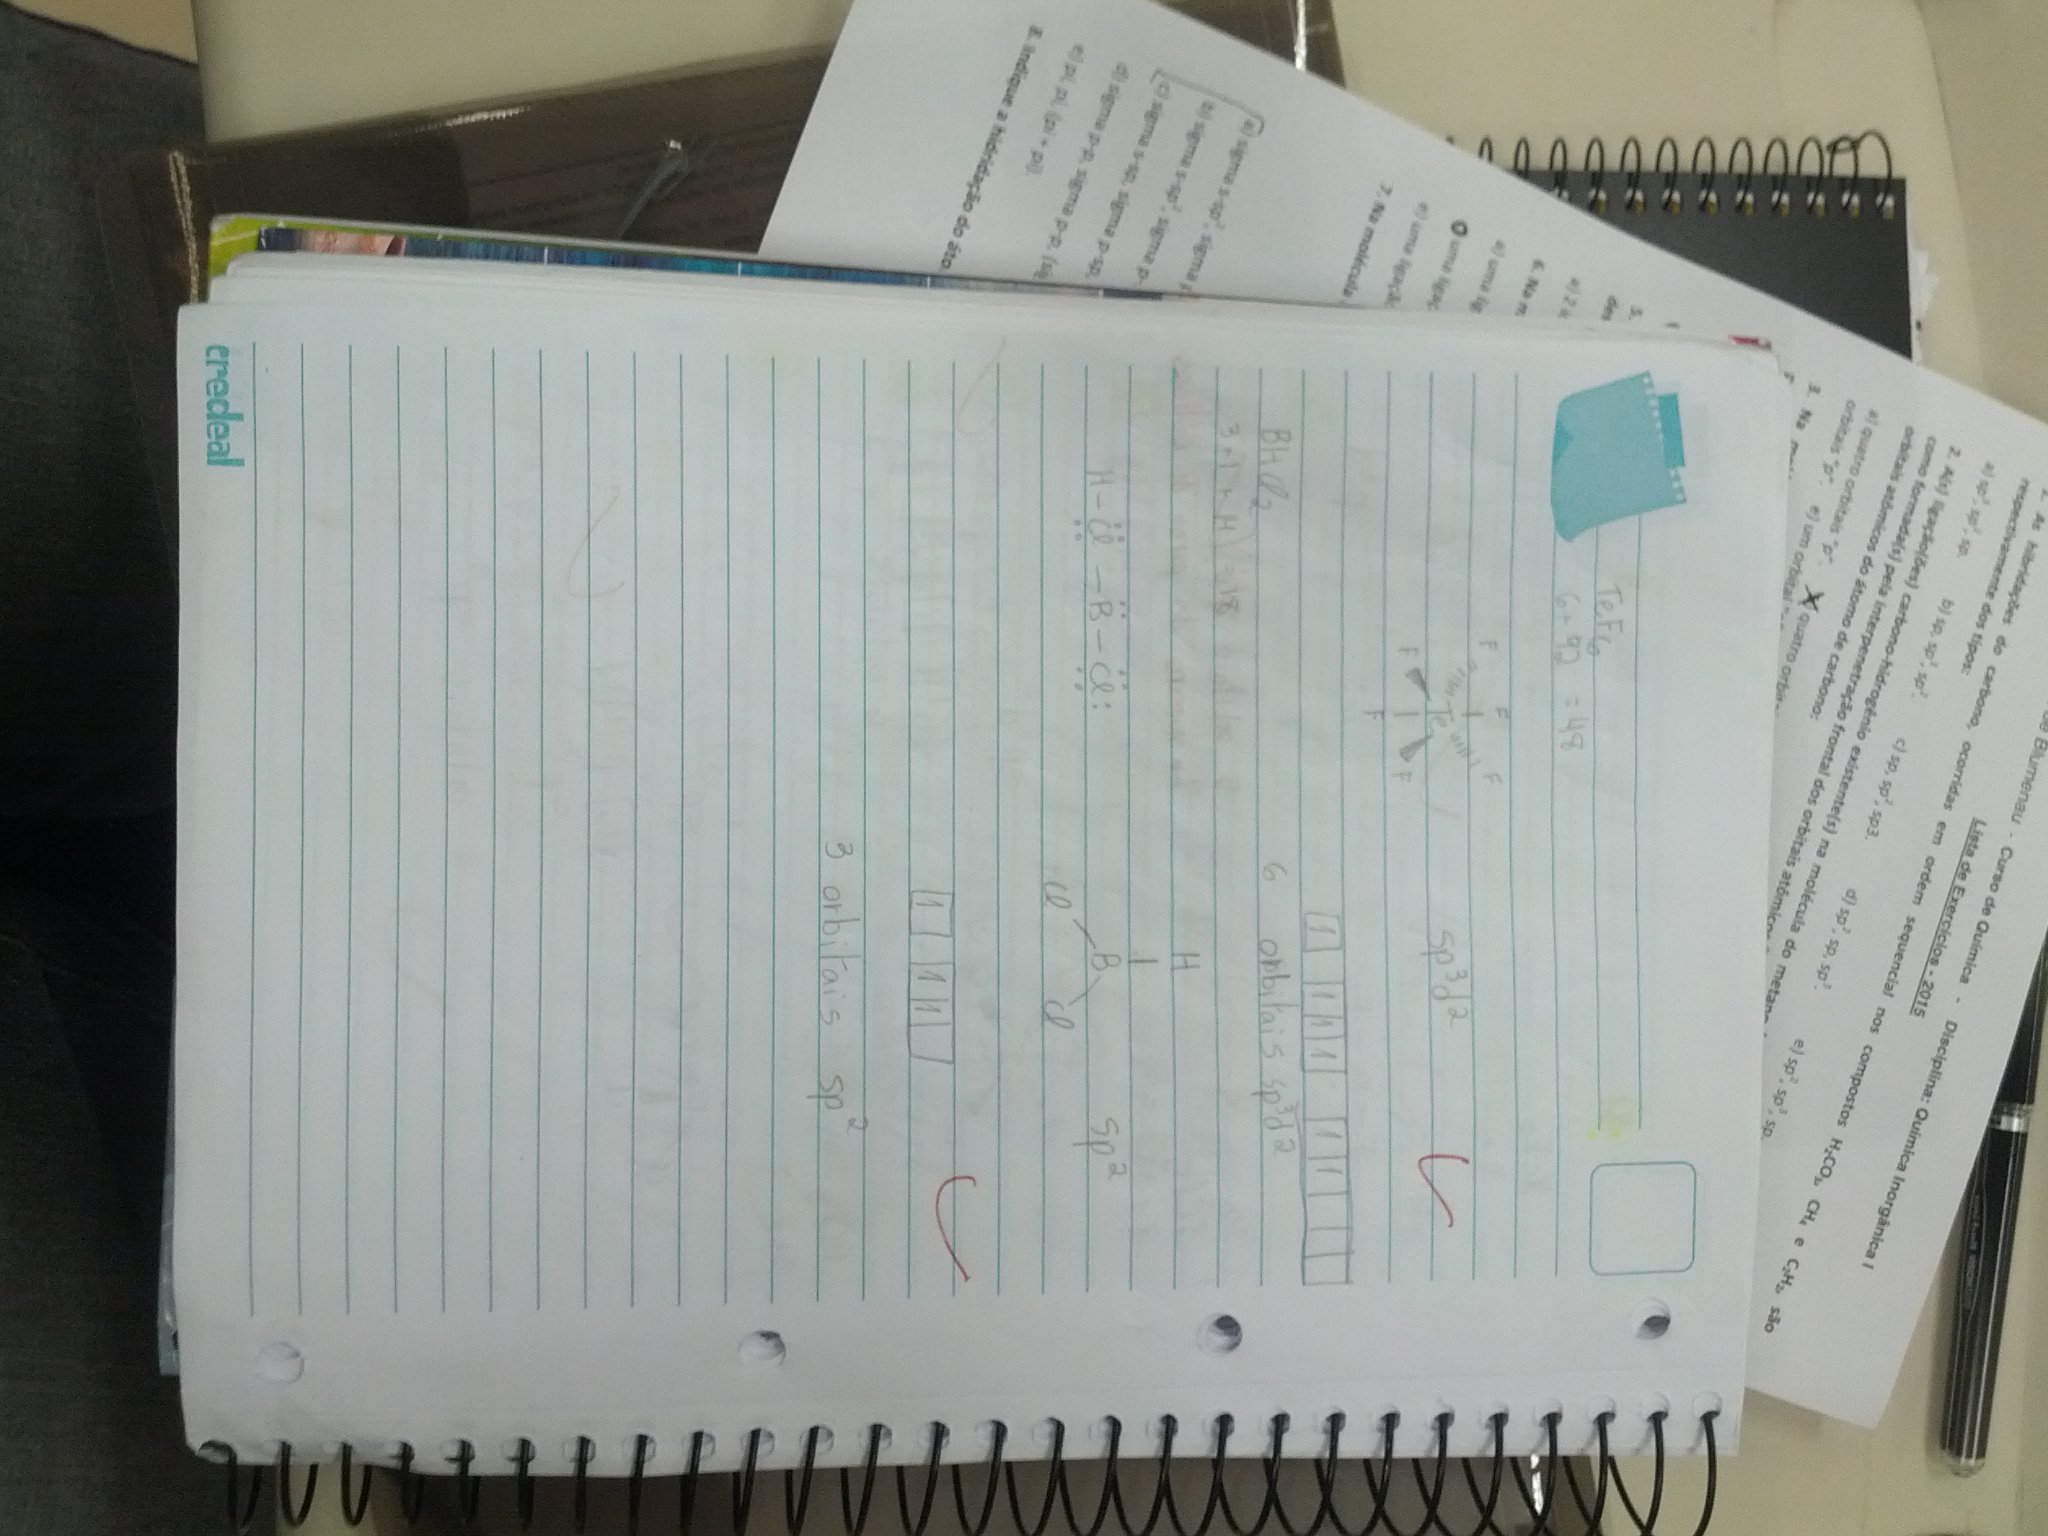 de Blumenau - Curso de Química - Disciplina: Química Inorgânica I
Lista de Exercícios - 2015
1. As hibridações do carbono, ocorridas em ordem sequencial nos compostos H₂CO₃, CH₄ e C₂H₂, são
respectivamente dos tipos:
a) sp³, sp², sp. b) sp, sp³, sp². c) sp, sp², sp3. d) sp², sp, sp³. e) sp², sp³, sp.
2. A(s) ligação(ões) carbono-hidrogênio existente(s) na molécula do metano
como formada(s) pela interpenetração frontal dos orbitais atômicos
orbitais atômicos do átomo de carbono:
a) quatro orbitais "p". quatro
orbitais "p". e) um orbital
3. Na
5.
a) 2
6. Na
a) uma
uma
e) uma ligação
7. Na molécula
a) sigma s-sp², sigma
b) sigma s-sp², sigma p-
c) sigma s-sp, sigma p-sp,
d) sigma p-p, sigma p-p,
e) pi, pi, (pi + pi).
8. Indique a hidridação do
TeF₆
6+ 92 = 48
F F F
Te
F F
F
sp³d²
1 1 1 1 1 1
6 orbitais sp³d²
BHCl₂
H-Cl-B-Cl:
H
B
Cl Cl
sp²
1 1 1
3 orbitais sp²
credeal